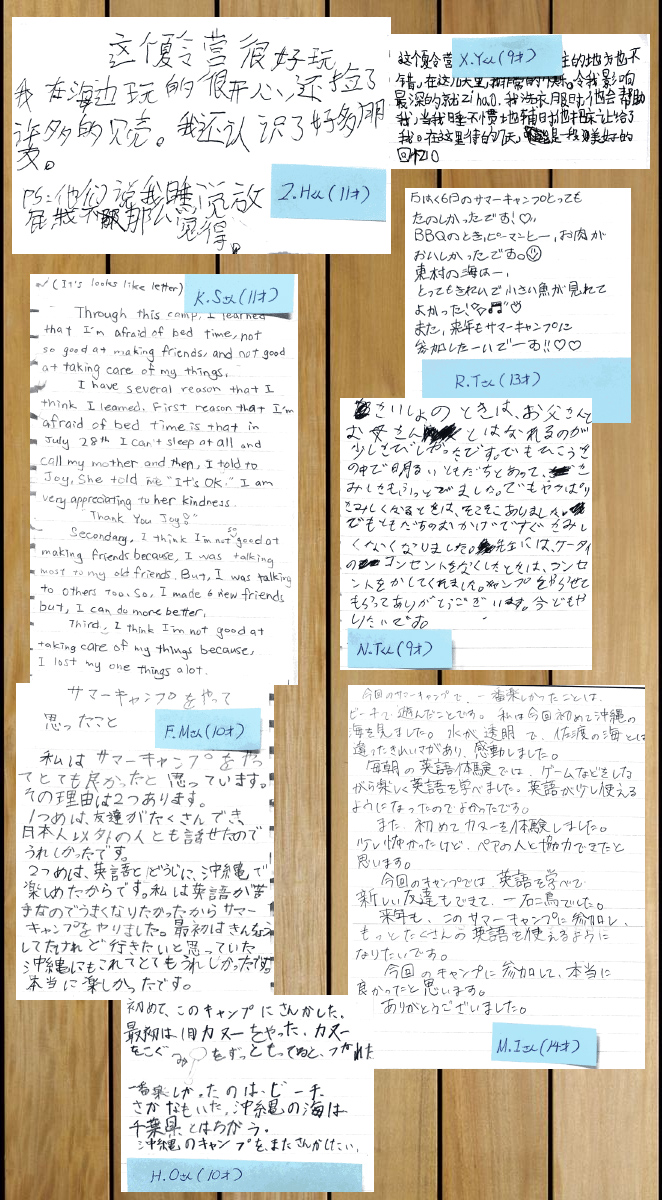 这個令营很好玩,
我在海边玩的很开心,还捡了
许多的贝壳。我还认识了好多朋
友。
PS:他们说我睡说放
屁我不
那么
觉得。
Z.Hくん(11才)
X.Yくん(9才)
这个夏令营
主的地方也不
错,在这几天里,
令我影响
最深的就Zihao,我洗衣服时他会帮助
我,当我睡不惯地铺时他
让给了
我。在这里待的7天,
是一段美好的
回忆。
5泊6日のサマーキャンプとっても
たのしかったです!♡。
BBQのとき、ピーマンとー、お肉が
おいしかったです。☺
東村の海はー、
とってもきれいで小さい魚が見れて
よかった!
また、来年もサマーキャンプに
参加したーいでーす!!♡♡
R.Tさん(13才)
K.Sさん(11才)
(It's looks like letter)
Through this camp, I learned
that I'm afraid of bed time, not
so good at making friends, and not good
at taking care of my things.
I have several reason that I
think I learned. First reason that I'm
afraid of bed time is that in
July 28th I can't sleep at all and
call my mother and then, I told to
Joy. She told me "It's OK." I am
very appreciating to her kindness.
"Thank You Joy!"
Secondary, I think I'm not so good at
making friends because, I was talking
most to my old friends. But, I was talking
to others too. So, I made 6 new friends
but, I can do more better.
Third, I think I'm not good at
taking care of my things because,
I lost my one things alot.
さいしょのときは、お父さんと
お母さん とはなれるのが
少しさびしかったです。でもひこうき
の中で明るいともだちとあって、さ
みしさもふっとびました。でもやっぱり
さみしくなるときは、そこそこありました。
でもともだちのおかげですぐさみし
くなくなりました。先生には、ケータイ
のコンセントをなくしたときは、コンセ
ントをかしてくれました。キャンプをやらせて
もらってありがとうございます。今どもや
りたいです。
N.Tくん(9才)
サマーキャンプをやって
思ったこと
F.Mさん(10才)
私はサマーキャンプをやっ
てとても良かったと思っています。
その理由は2つあります。
1つめは、友達がたくさんでき、
日本人以外の人とも話せたので
うれしかったです。
2つめは、英語とどうじに、沖縄で
楽しめたからです。私は英語が苦
手なのでうまくなりたかったからサマー
キャンプをやりました。最初はきんちょう
してたけれど行きたいと思っていた
沖縄にもこれてとてもうれしかったです。
本当に楽しかったです。
今回のサマーキャンプで、一番楽しかったことは、
ビーチで遊んだことです。私は今回初めて沖縄の
海を見ました。水が透明で、佐渡の海とは
違ったきれいさがあり、感動しました。
毎朝の英語体験では、ゲームなどをしな
がら楽しく英語を学べました。英語が少し使える
ようになったのでよかったです。
また、初めてカヌーを体験しました。
少し怖かったけど、ペアの人と協力できたと
思います。
今回のキャンプでは、英語を学べて
新しい友達もできて、一石二鳥でした。
来年も、このサマーキャンプに参加し、
もっとたくさんの英語を使えるように
なりたいです。
今回のキャンプに参加して、本当に
良かったと思います。
ありがとうございました。
M.Iさん(14才)
初めて、このキャンプにさんかした。
最初は、1日カヌーをやった。カヌー
をこぐ
をずっともってると、つかれた
一番楽しかったのは、ビーチ、
さかなもいた。沖縄の海は
千葉県とはちがう。
沖縄のキャンプを、またさんかしたい。
H.Oさん(10才)